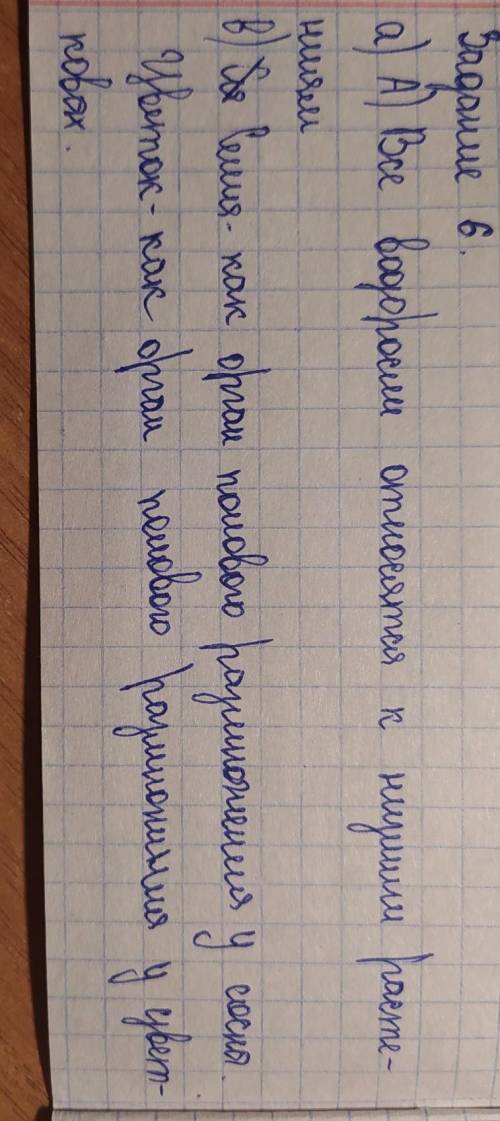 Задание 6.
а) А) Все водоросли относятся к низшим расте-
ниям
в) Семя - как орган полового размножения у сосны.
Цветок - как орган полового размножения у цвет-
ковых.